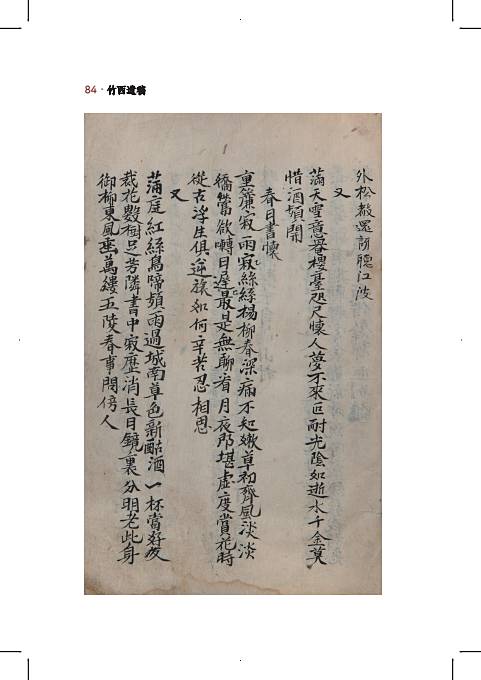 84 · 竹西遺稿
外松聲還訝聽江波
又
滿天雪意暮樓臺咫尺懷人夢不來叵耐光陰如逝水千金莫
惜酒頻開
春日書懷
重簾寂雨寂絲絲楊柳春深痛不知嫩草初齊風淡淡
嬌鶯欲囀日遲最是無聊看月夜那堪虛度賞花時
從古浮生俱逆旅如何辛苦忍相思
又
滿庭紅綠鳥啼頻雨過城南草色新酤酒一杯當好友
栽花數樹足芳隣書中寂歷消長日鏡裏分明老此身
御柳東風垂萬縷五陵春事問傍人